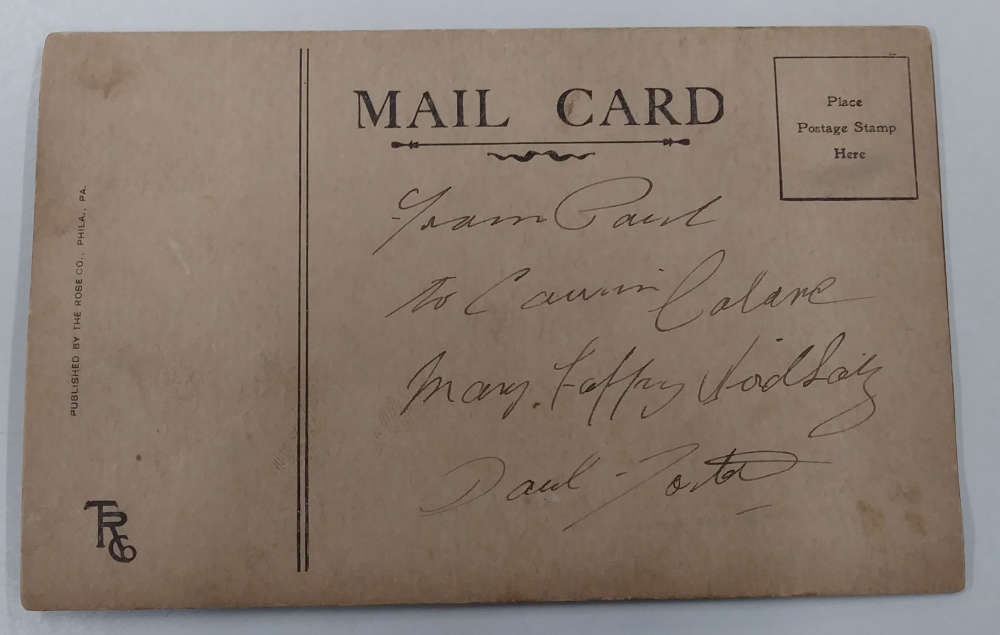 MAIL CARD
Place
Postage Stamp
Here
From Paul
to Cousin
Mary. Happy
Paul Foster
PUBLISHED BY THE ROSE CO., PHILA., PA.
TRCo